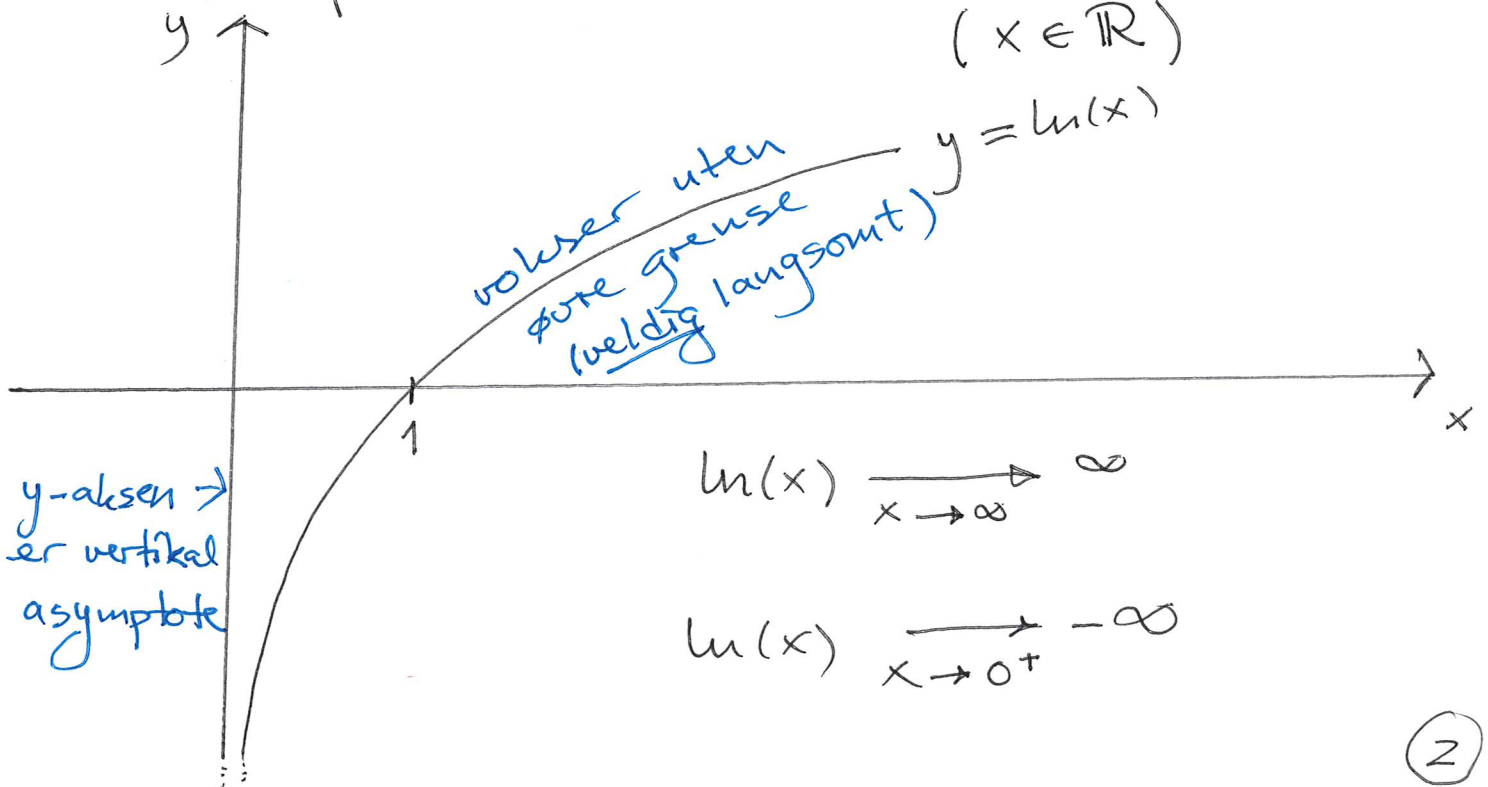 y
(x ∈ ℝ)
y = ln(x)
vokser uten
øvre grense
(veldig langsomt)
x
1
y-aksen →
er vertikal
asymptote
ln(x) ⟶ ∞
x → ∞
ln(x) ⟶ -∞
x → 0⁺
2